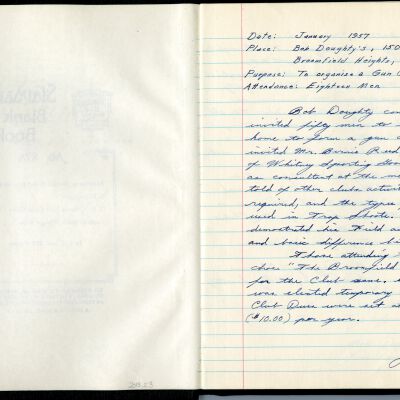 Date: January 1957
Place: Bob Doughty's, 150
Broomfield Heights,
Purpose: To organize a Gun C
Attendance: Eighteen Men
Bob Doughty con
invited fifty men to
home to form a gun c
invited Mr. Bernie Reed
of Whitney Sporting Goo
as consultant at the me
told of other clubs activi
required, and the types
used in Trap Shoots.
demonstrated his Field
and basic difference be
Those attending
chose "The Broomfield
for the Club name.
was elected temporary
Club Dues were set a
($10.00) per year.